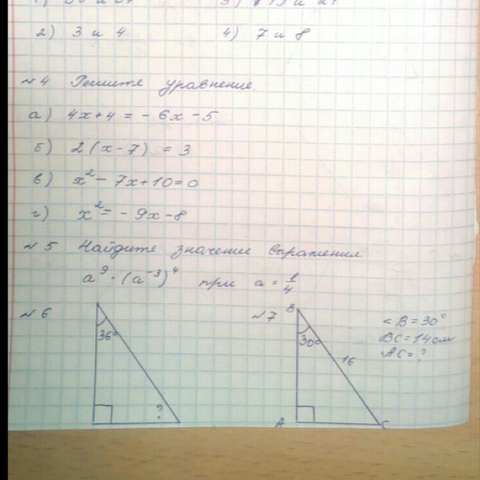 2) 3 и 4 4) 7 и 8
№4 Решите уравнение
а) 4x+4 = -6x-5
б) 2(x-7) = 3
в) x² - 7x+10=0
г) x² = -9x-8
№5 Найдите значение выражения
a⁹ · (a⁻³)⁴ при a = 1/4
№6 №7
36°
?
B
30°
16
A
C
<B=30°
BC=14см
AC=?